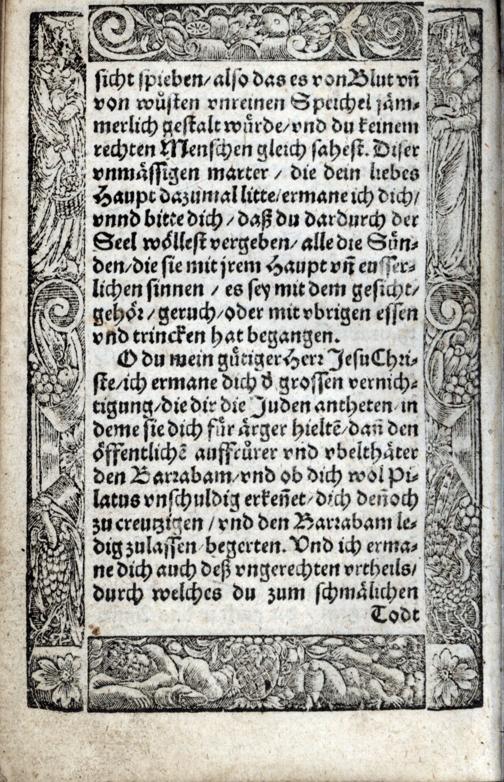 sicht spieben/ also das es von Blut vñ
von wůsten vnreinen Speichel jäm-
merlich gestalt würde/ vnd du keinem
rechten Menschen gleich sahest. Diser
vnmässigen marter / die dein liebes
Haupt dazumal litte/ ermane ich dich/
vnnd bitte dich / daß du dardurch der
Seel wöllest vergeben/ alle die Sün-
den/ die sie mit jrem Haupt vñ eusser-
lichen sinnen / es sey mit dem gesicht/
gehör/ geruch/ oder mit vbrigen essen
vnd trincken hat begangen.
O du mein gütiger Herr Jesu Chri-
ste/ ich ermane dich d̕ grossen vernich-
tigung/ die dir die Juden antheten/ in
deme sie dich für ärger hieltẽ/ dañ den
öffentlichẽ auffrürer vnd vbelthäter
den Barrabam/ vnd ob dich wol Pi-
latus vnschuldig erkeñet/ dich deñoch
zu creutzigen / vnd den Barrabam le-
dig zulassen/ begerten. Vnd ich erma-
ne dich auch deß vngerechten vrtheils/
durch welches du zum schmälichen
Todt